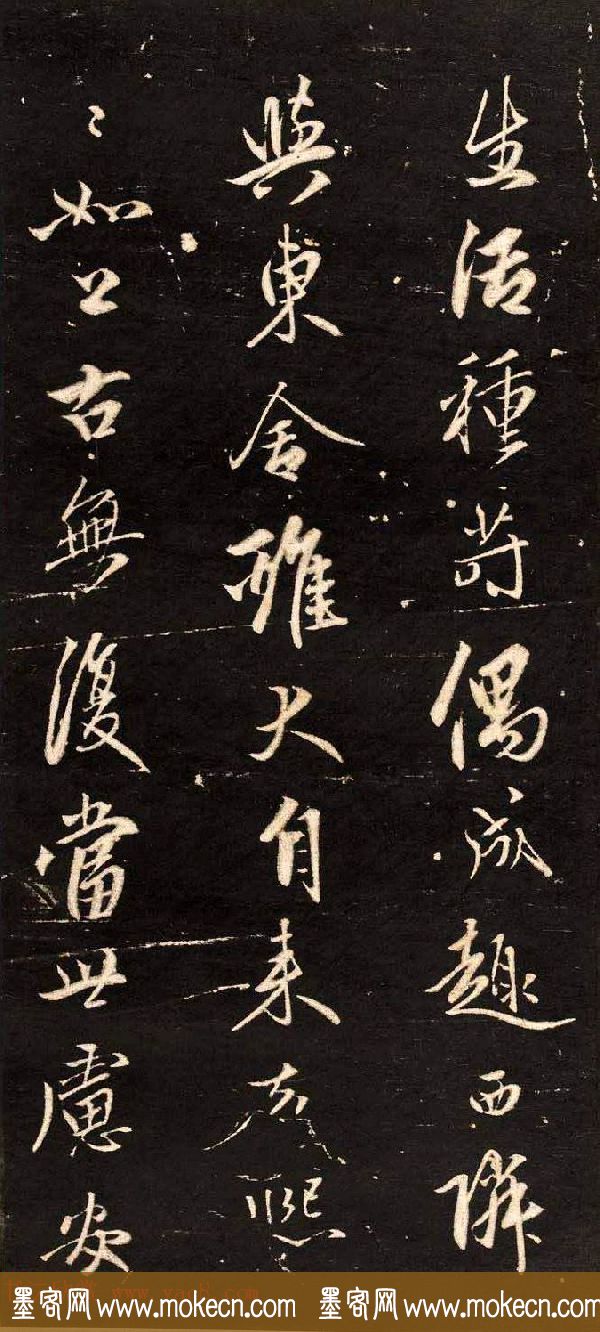 生活種蒔偶成趣西隣
與東舍雞犬自来去熙
〻如上古無復當世慮安
墨客网 www.mokecn.com 墨客网 www.mokecn.com